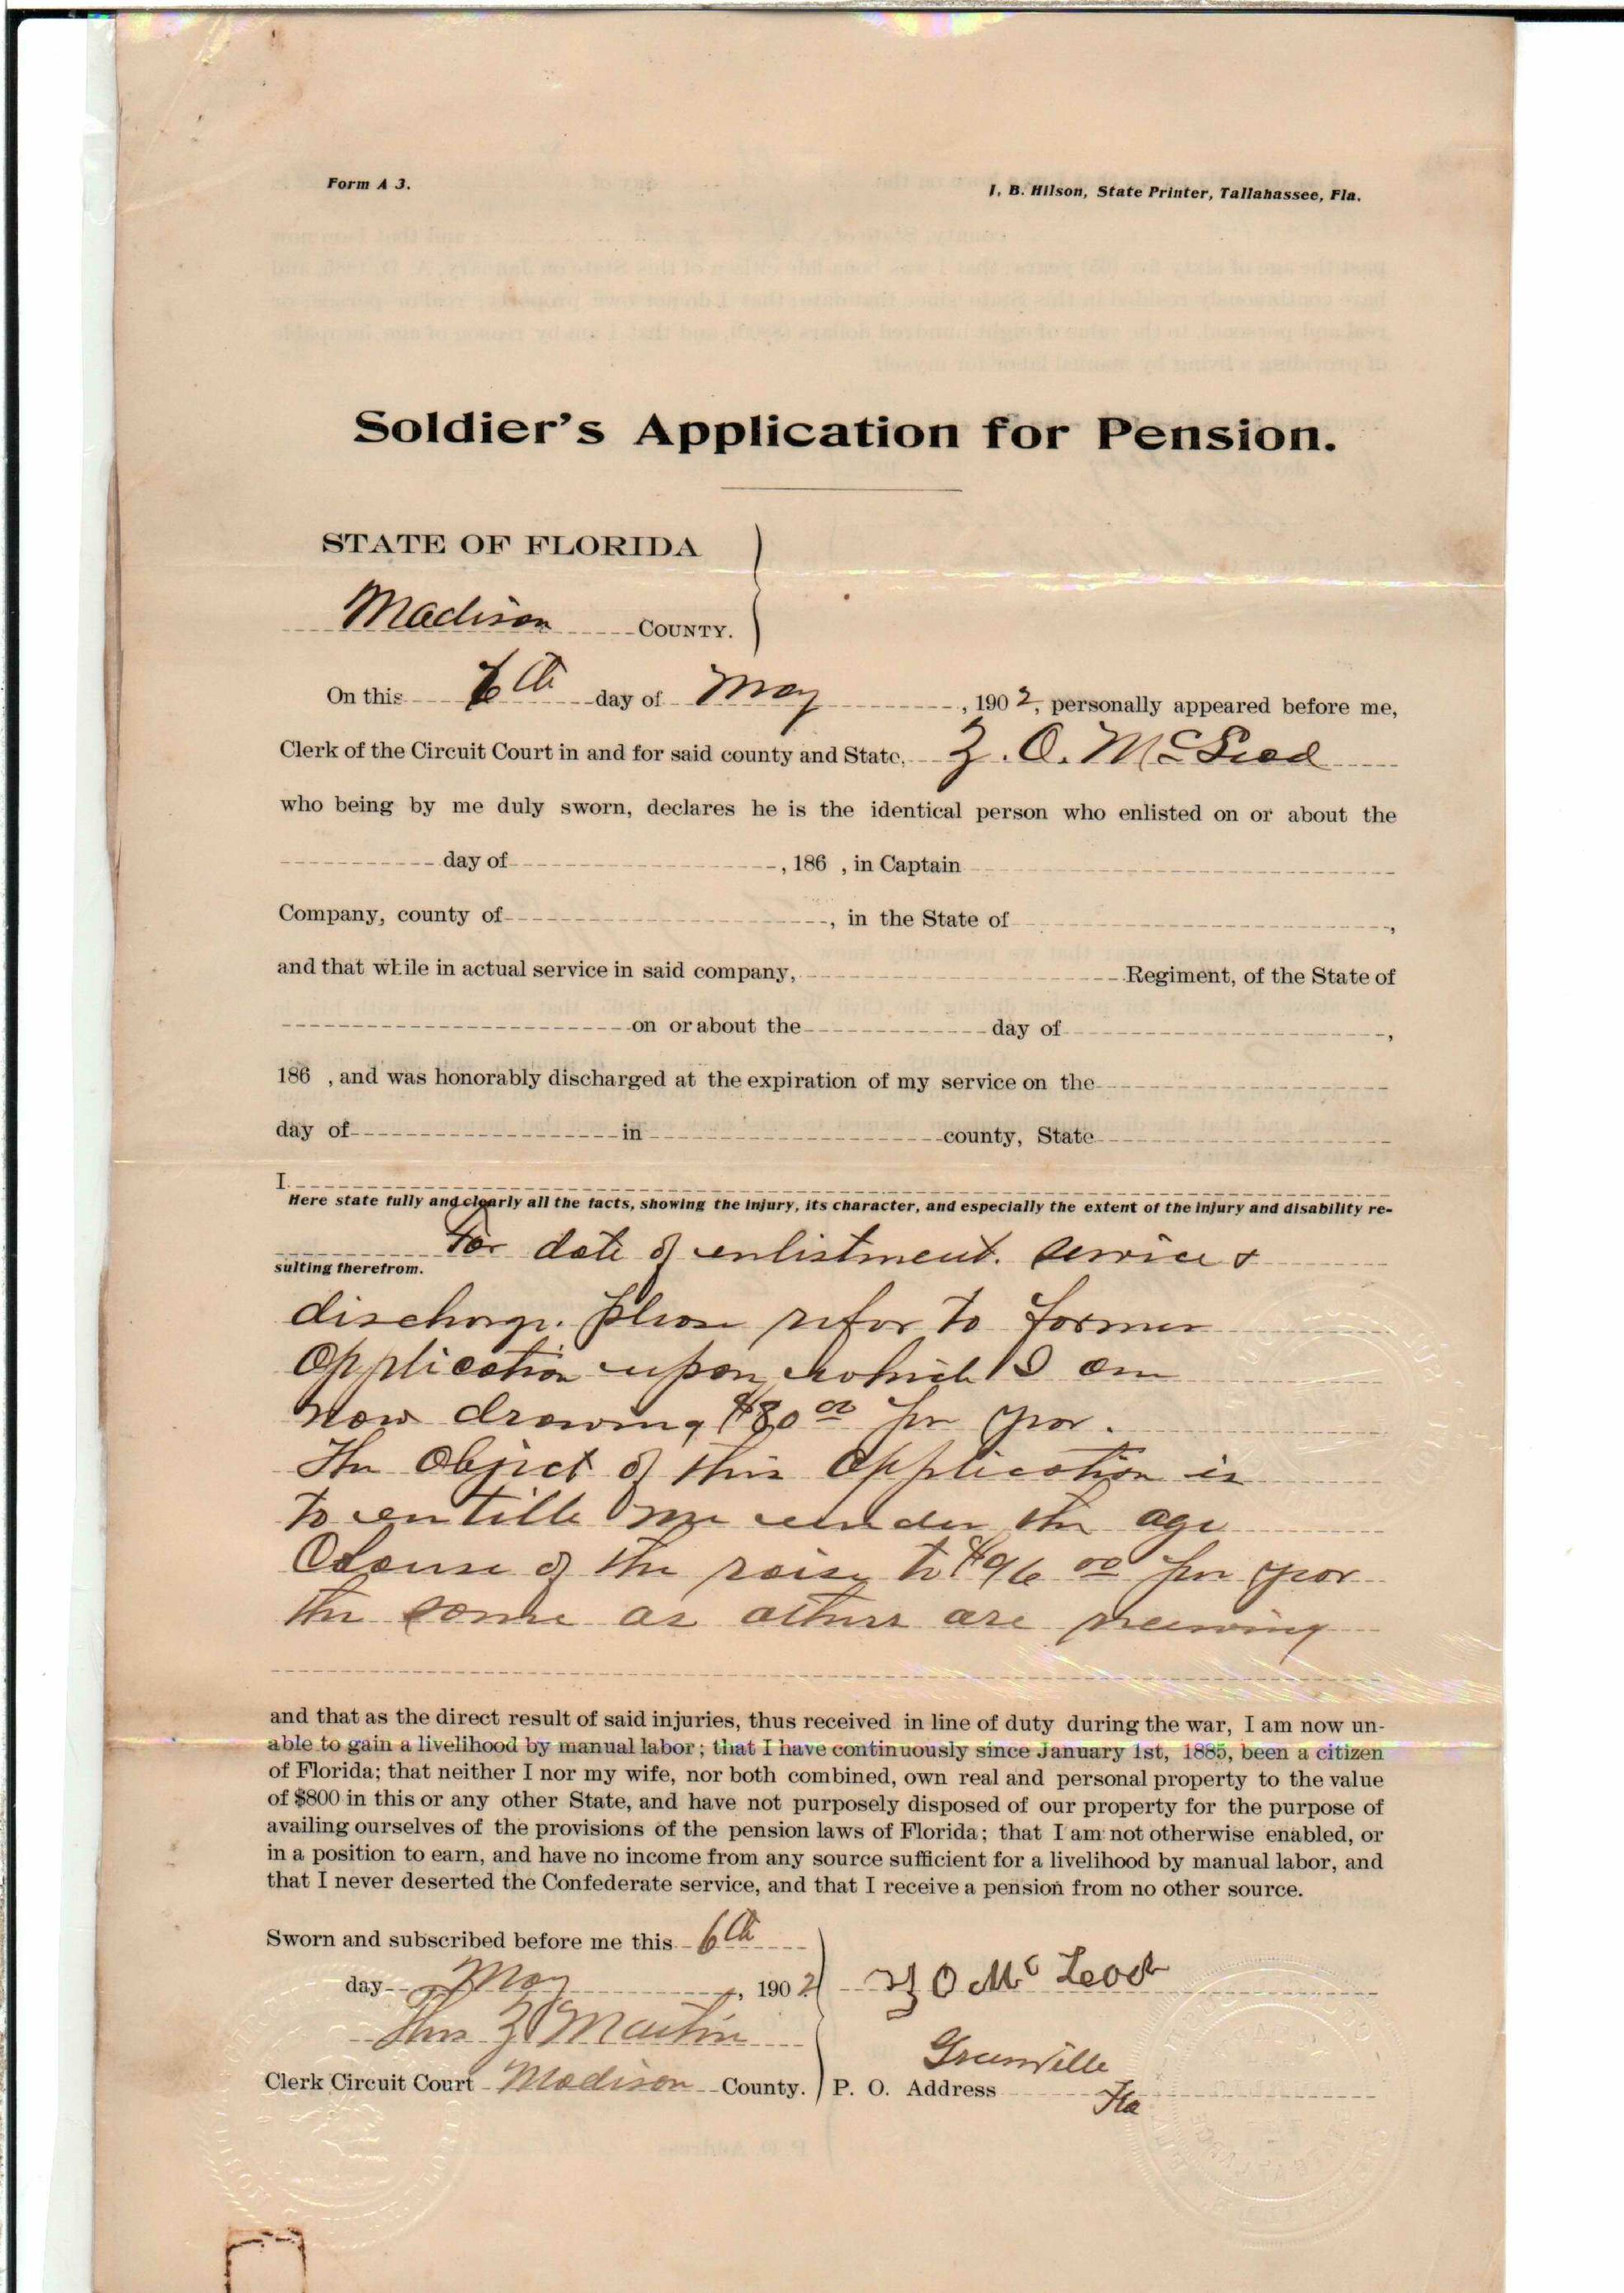 Form A 3.
I. B. Hilson, State Printer, Tallahassee, Fla.
Soldier's Application for Pension.
STATE OF FLORIDA
Madison COUNTY.
On this 6th day of May, 1902, personally appeared before me,
Clerk of the Circuit Court in and for said county and State, Z. O. McLeod
who being by me duly sworn, declares he is the identical person who enlisted on or about the
day of , 186 , in Captain
Company, county of , in the State of ,
and that while in actual service in said company, Regiment, of the State of
on or about the day of ,
186 , and was honorably discharged at the expiration of my service on the
day of in county, State
I
Here state fully and clearly all the facts, showing the injury, its character, and especially the extent of the injury and disability re-
sulting therefrom. For date of enlistment. service &
discharge. please refer to former
Application upon which I am
now drawing $80 00 per year.
The Object of this Application is
to entitle me under the age
Clause of the raise to $96 00 per year
the same as others are receiving
and that as the direct result of said injuries, thus received in line of duty during the war, I am now un-
able to gain a livelihood by manual labor; that I have continuously since January 1st, 1885, been a citizen
of Florida; that neither I nor my wife, nor both combined, own real and personal property to the value
of $800 in this or any other State, and have not purposely disposed of our property for the purpose of
availing ourselves of the provisions of the pension laws of Florida; that I am not otherwise enabled, or
in a position to earn, and have no income from any source sufficient for a livelihood by manual labor, and
that I never deserted the Confederate service, and that I receive a pension from no other source.
Sworn and subscribed before me this 6th
day May, 1902
Z O McLeod
Z Martin
Greenville
Clerk Circuit Court Madison County.
P. O. Address
Fla